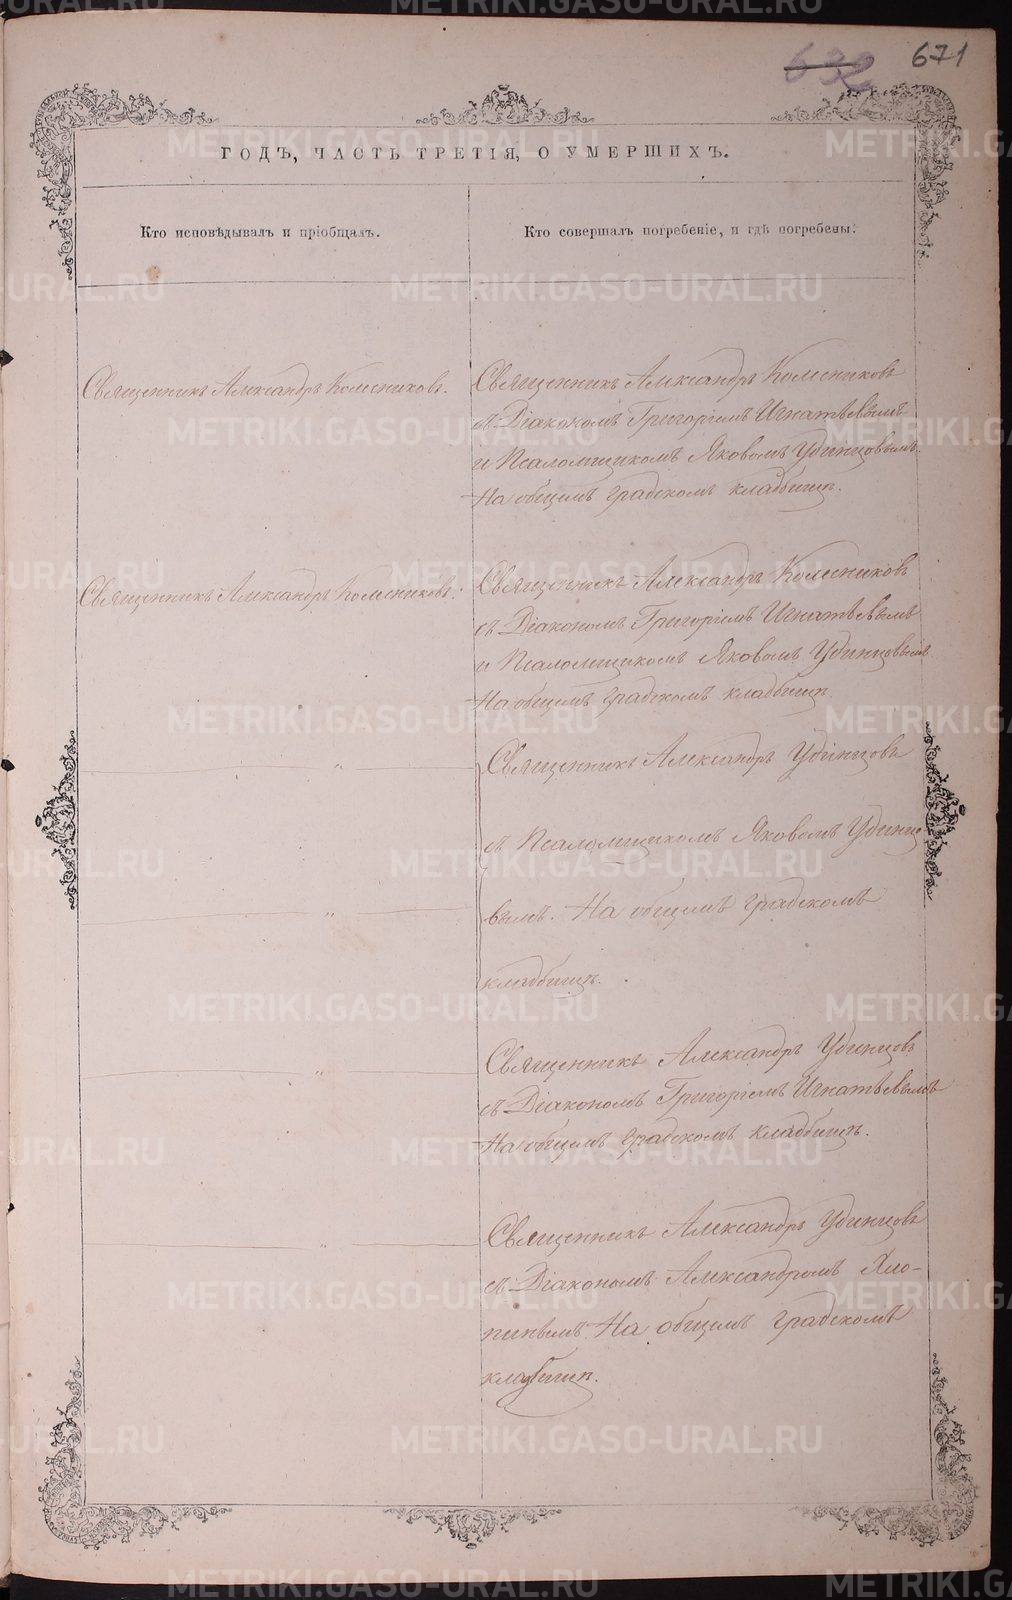 632 671
ГОДЪ, ЧАСТЬ ТРЕТІЯ, О УМЕРШИХЪ.
Кто исповѣдывалъ и пріобщалъ.
Кто совершалъ погребеніе, и гдѣ погребены.
Священникъ Александръ Колесниковъ.
Священникъ Александръ Колесниковъ
съ Діакономъ Григоріемъ Игнатьевымъ
и Псаломщикомъ Яковомъ Удинцовымъ.
На общемъ градскомъ кладбищѣ.
Священникъ Александръ Колесниковъ.
Священникъ Александръ Колесниковъ
съ Діакономъ Григоріемъ Игнатьевымъ
и Псаломщикомъ Яковомъ Удинцовымъ
На общемъ градскомъ кладбищѣ.
"
Священникъ Александръ Удинцовъ
съ Псаломщикомъ Яковомъ Удинцо
"
вымъ. На общемъ градскомъ
кладбищѣ.
"
Священникъ Александръ Удинцовъ
съ Діакономъ Григоріемъ Игнатьевымъ
На общемъ градскомъ кладбищѣ.
"
Священникъ Александръ Удинцовъ
съ Діакономъ Александромъ Хло-
пинымъ. На общемъ градскомъ
кладбищѣ.
METRIKI.GASO-URAL.RU